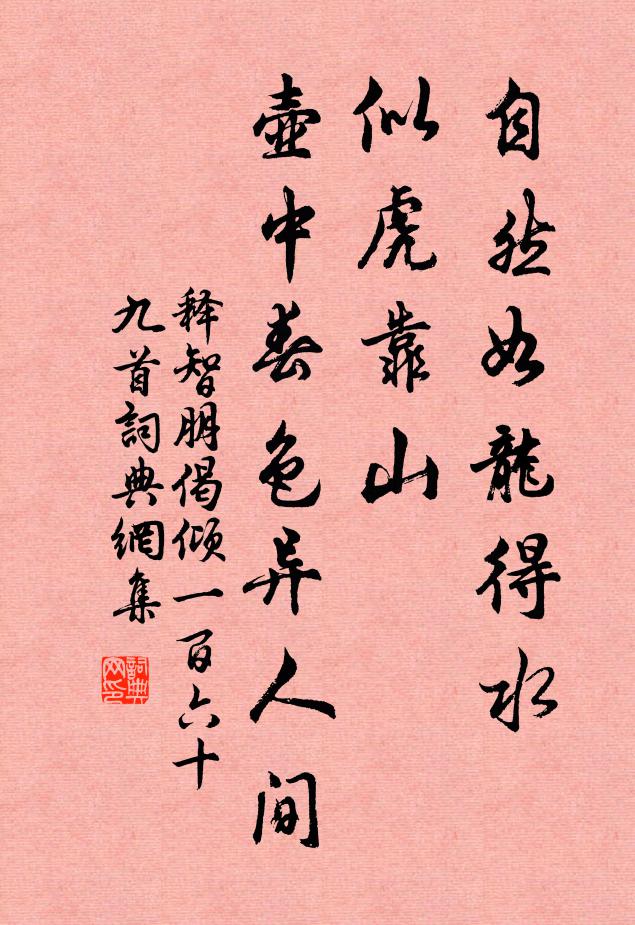 自然如龍得水
似虎靠山
壺中春色异人间
释智朋偈倾一百六十
九首詞典網集
詞典网印